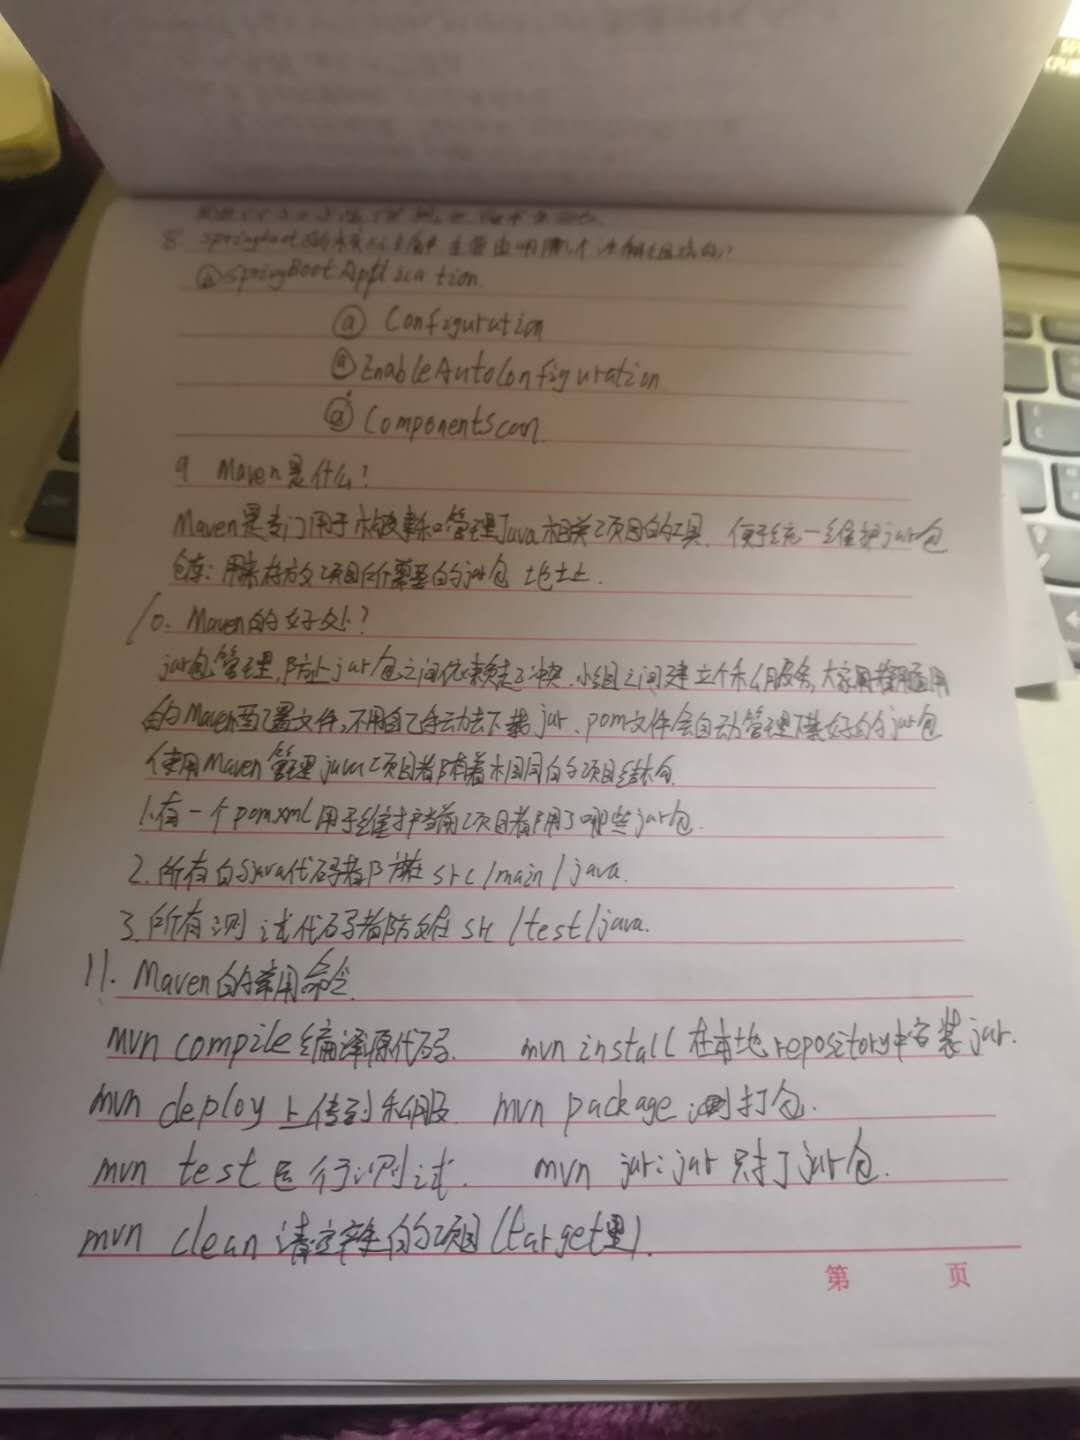 8. springboot的核心注解 主要由哪几个注解组成的?
@SpringBootApplication
@ Configuration
@EnableAutoConfiguration
@ ComponentScan
9 Maven是什么?
Maven是专门用于构建和管理Java相关项目的工具. 便于统一维护jar包
仓库: 用来存放项目所需要的jar包 地址.
10. Maven的好处?
jar包管理, 防止jar包之间依赖起冲突. 小组之间建立个私服务, 大家用通用
的Maven配置文件, 不用自己手动去下载jar. pom文件会自动管理下载好的jar包
使用Maven管理java项目都有着相同的项目结构
1.有一个pom.xml用于维护当前项目都用了哪些jar包.
2.所有的java代码都放在src/main/java.
3.所有测试代码都放在src/test/java.
11. Maven的常用命令.
mvn compile编译源代码. mvn install 在本地repository中安装jar.
mvn deploy上传到私服 mvn package 打包.
mvn test 运行测试. mvn jar:jar 只打jar包.
mvn clean 清空产生的项目(target里).
第 页